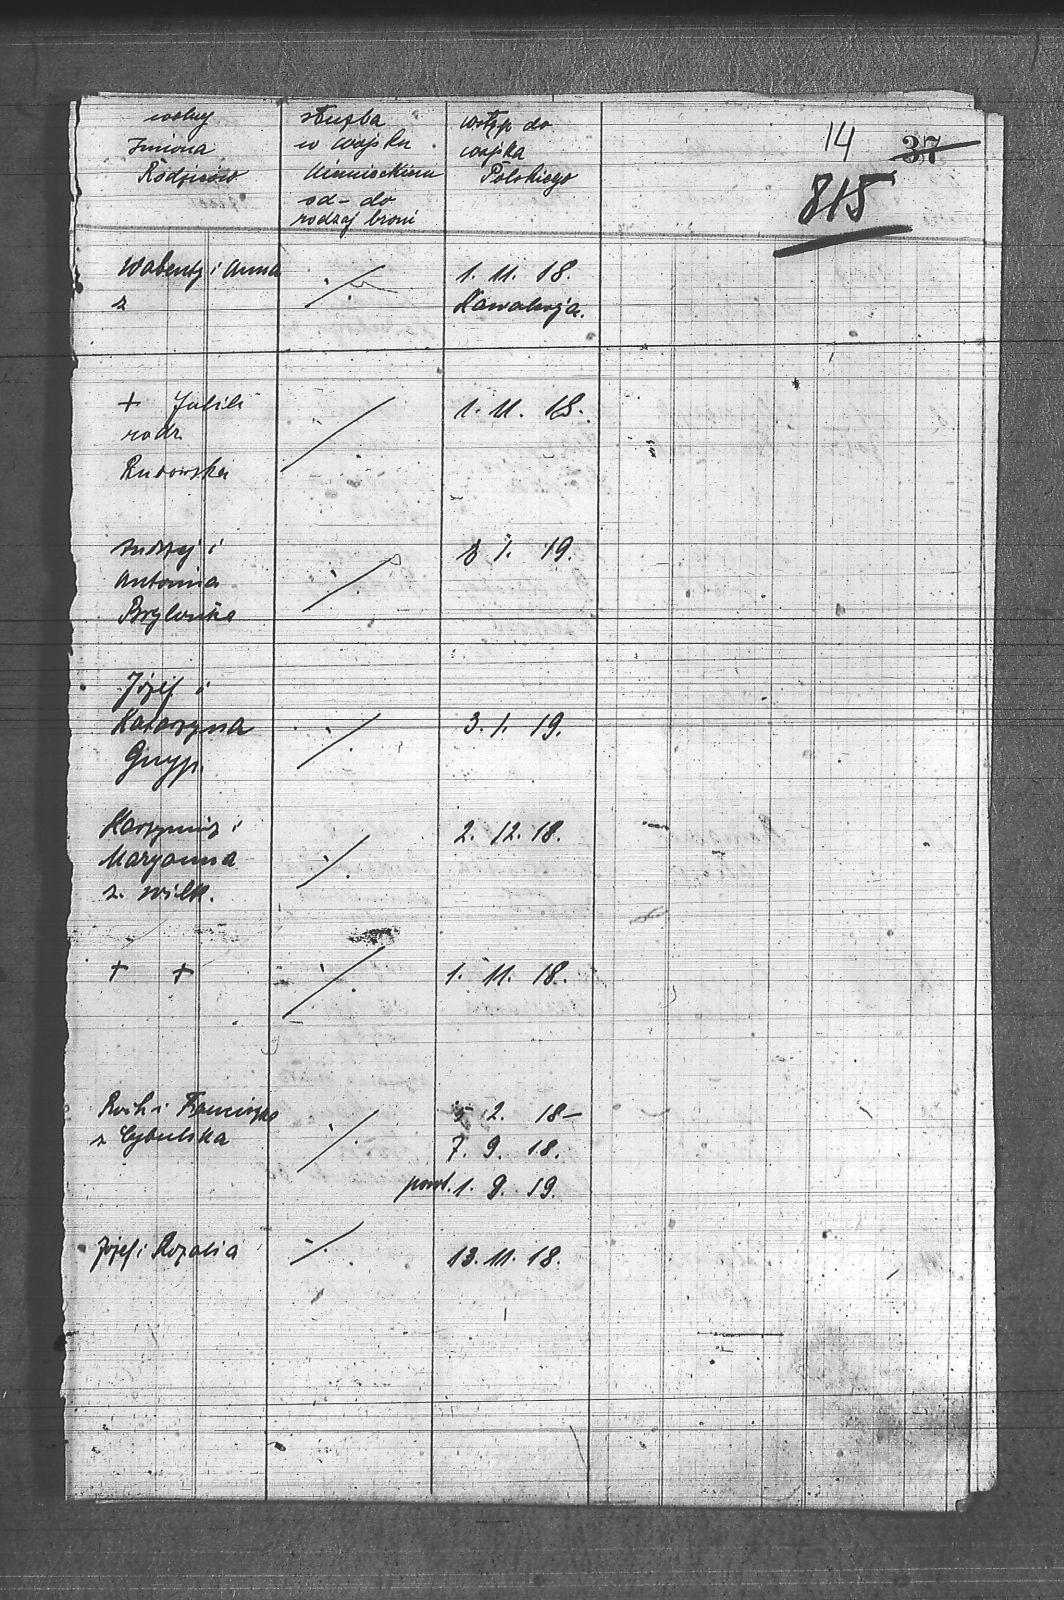 14 37
815
wolny
Imiona
Rodziców
służba
w wojsku
Niemieckiem
od - do
rodzaj broni
wstęp do
wojska
Polskiego
i Anna
z
./.
1. 11. 18.
Kawalerja.
+ Julili
rodz
Rudowska
/
1. 11. 18.
Andrzej i
Antonina
Brylonka
./.
8 1. 19.
Józef i
Katarzyna
Gnyp.
./.
3. 1. 19.
Kazymirz i
Maryanna
z. Wilk.
./.
2. 12. 18.
+ +
./.
1. 11. 18.
Roch i Franciszka
z Cybulska
./.
5 2. 18 -
7. 9. 18.
1. 9. 19.
Józef i Rozalia
./.
13. 11. 18.